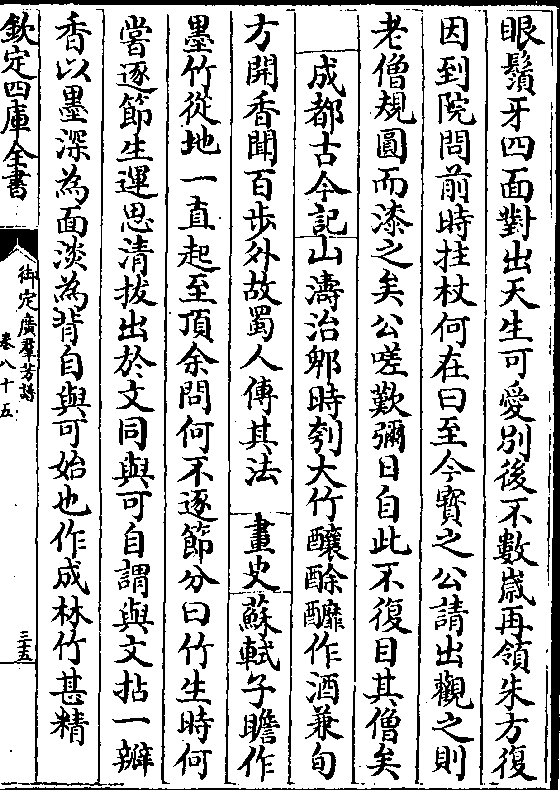 眼鬚牙四面對出天生可愛別後不數嵗再領朱方復
因到院問前時拄杖何在曰至今寳之公請出觀之則
老僧規圓而漆之矣公嗟歎彌日自此不復目其僧矣
成都古今記山濤治郫時刳大竹釀酴醿作酒兼旬
方開香聞百步外故蜀人傳其法　畫史蘇軾子瞻作
墨竹從地一直起至頂余問何不逐節分曰竹生時何
嘗逐節生運思清拔出於文同與可自謂與文拈一瓣
香以墨深為面淡為背自與可始也作成林竹甚精
欽定四庫全書
御定廣羣芳譜
卷八十五
三五